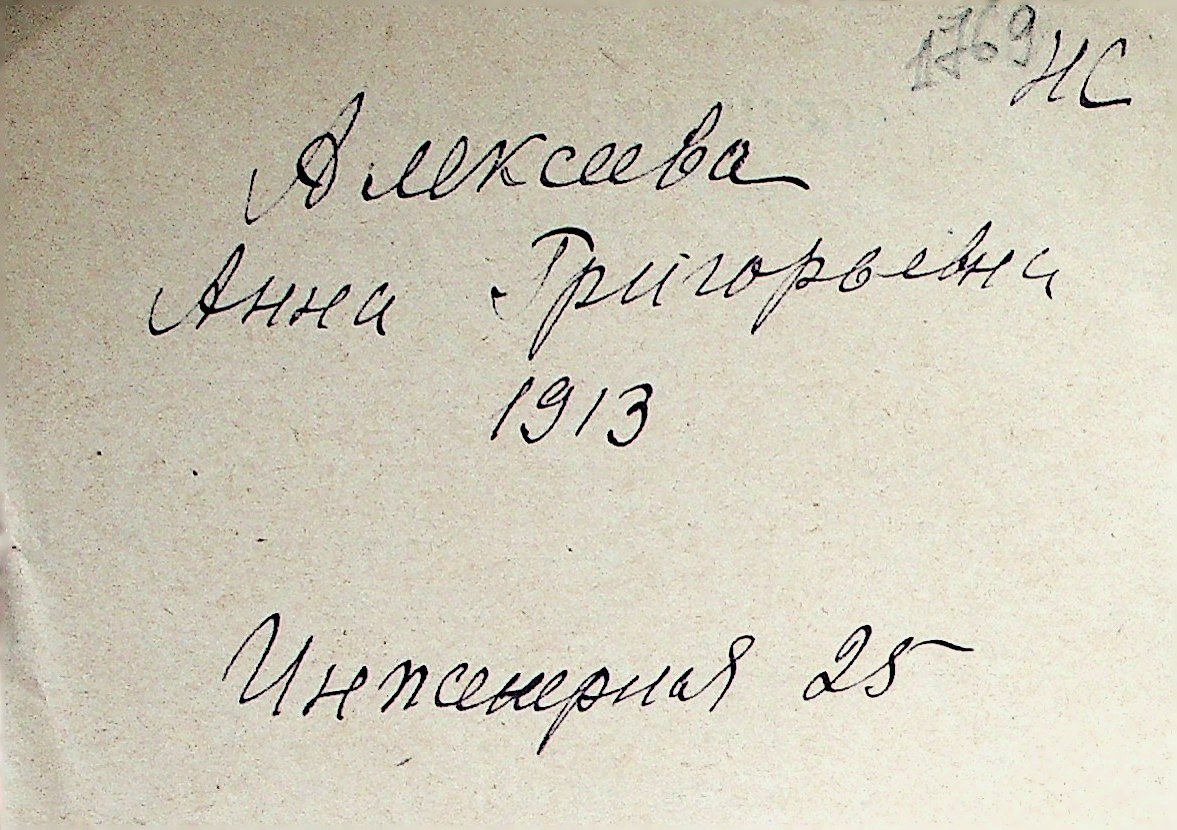 1769 НС
Алексеева
Анна Григорьевна
1913
Инженерная 25